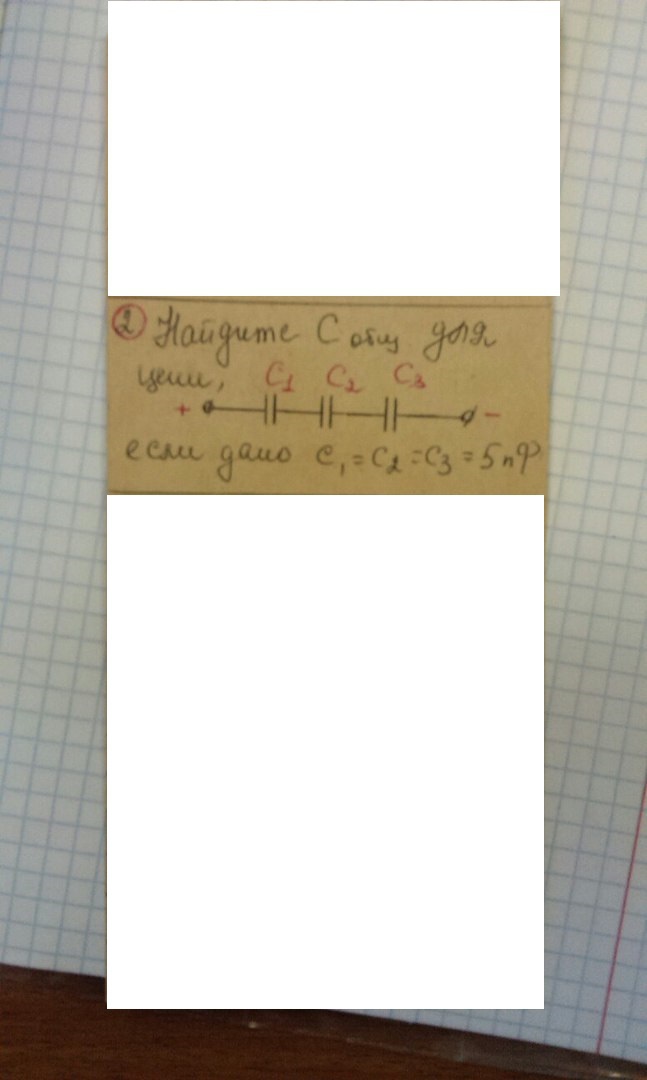 2 Найдите C общ для
цепи, C₁ C₂ C₃
+ −
если дано C₁ = C₂ = C₃ = 5 пФ